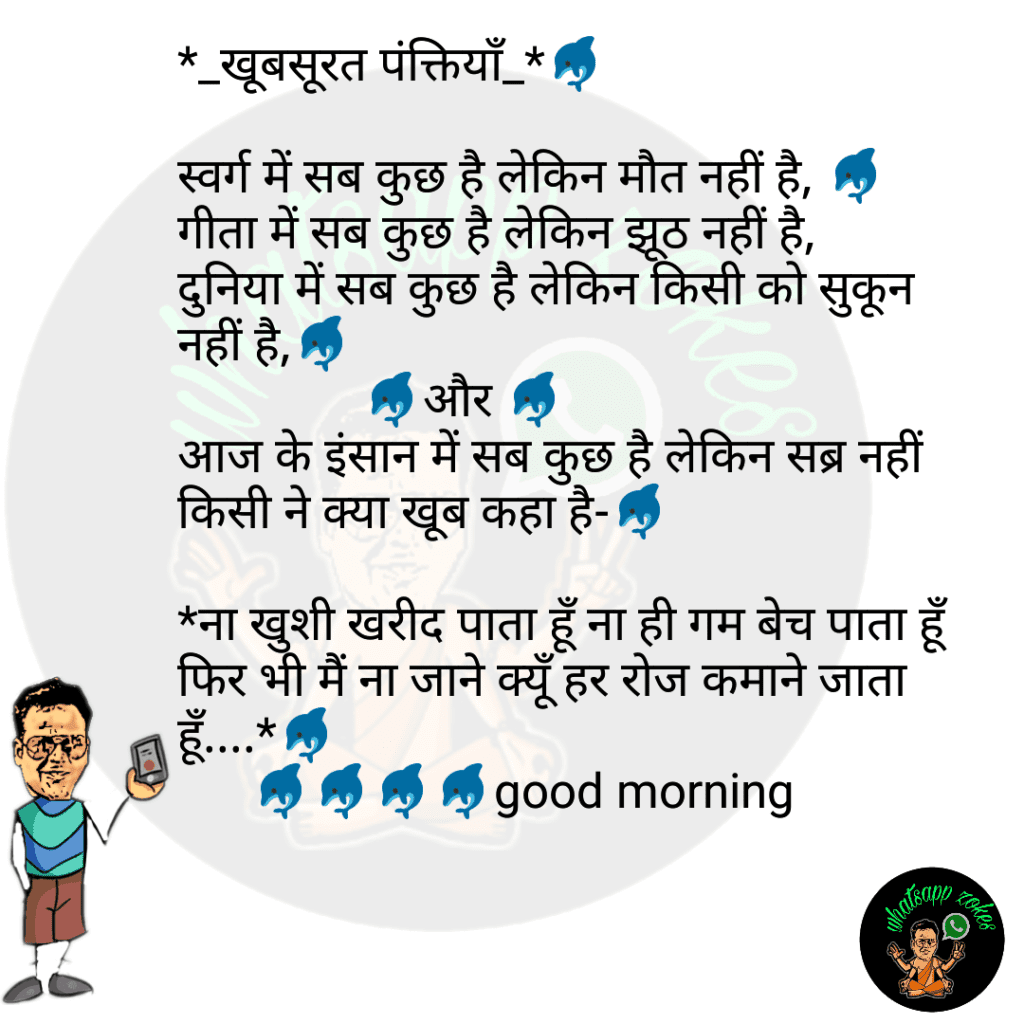 *_खूबसूरत पंक्तियाँ_*🐬
स्वर्ग में सब कुछ है लेकिन मौत नहीं है, 🐬
गीता में सब कुछ है लेकिन झूठ नहीं है,
दुनिया में सब कुछ है लेकिन किसी को सुकून
नहीं है,🐬
🐬और 🐬
आज के इंसान में सब कुछ है लेकिन सब्र नहीं
किसी ने क्या खूब कहा है-🐬
*ना खुशी खरीद पाता हूँ ना ही गम बेच पाता हूँ
फिर भी मैं ना जाने क्यूँ हर रोज कमाने जाता
हूँ....*🐬
🐬🐬🐬🐬good morning
whatsapp zokes
whatsapp zokes